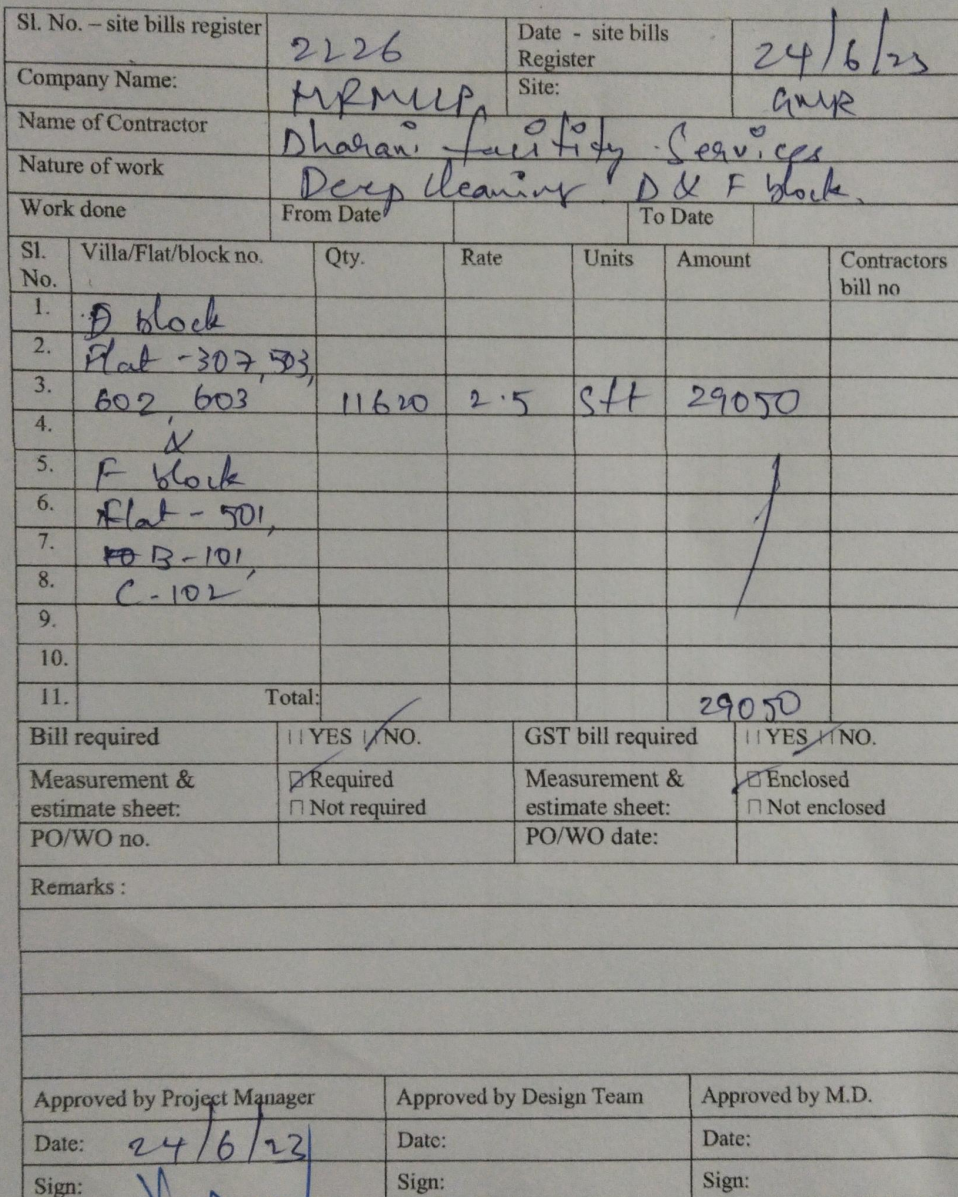 Sl. No. – site bills register 2226 Date - site bills Register 24/6/23
Company Name: MRMLLP Site: GMR
Name of Contractor Dharani facility Services
Nature of work Deep cleaning D & F block.
Work done From Date To Date
Sl. No. Villa/Flat/block no. Qty. Rate Units Amount Contractors bill no
1. D block
2. Flat - 307, 503,
3. 602, 603 11620 2.5 Sft 29050
4. &
5. F block
6. Flat - 501,
7. B-101,
8. C-102
9.
10.
11. Total: 29050
Bill required YES NO. GST bill required YES NO.
Measurement & estimate sheet: Required Not required Measurement & estimate sheet: Enclosed Not enclosed
PO/WO no. PO/WO date:
Remarks :
Approved by Project Manager Approved by Design Team Approved by M.D.
Date: 24/6/23 Date: Date:
Sign: Sign: Sign: